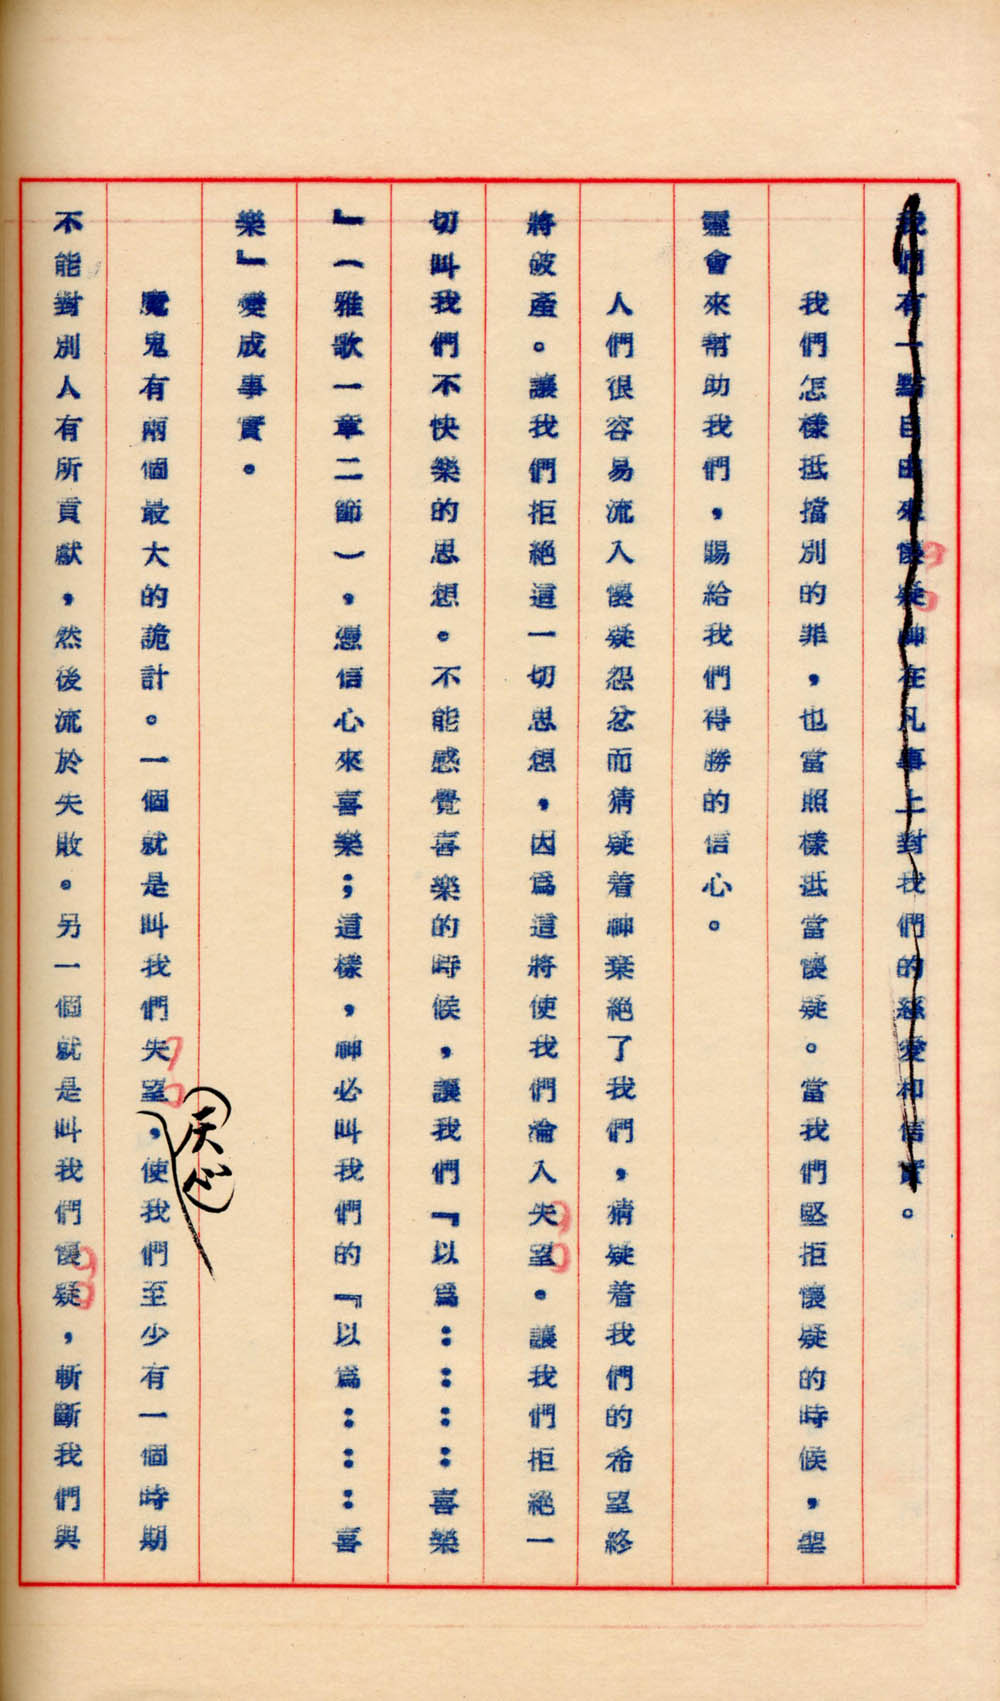 我們有一點自由來懷疑神在凡事上對我們的慈愛和信實。
我們怎樣抵擋別的罪，也當照樣抵當懷疑。當我們堅拒懷疑的時候，聖
靈會來幫助我們，賜給我們得勝的信心。
人們很容易流入懷疑怨忿而猜疑着神棄絕了我們，猜疑着我們的希望終
將破產。讓我們拒絕這一切思想，因為這將使我們淪入失望。讓我們拒絕一
切叫我們不快樂的思想。不能感覺喜樂的時候，讓我們『以為：：：：喜樂
』（雅歌一章二節），憑信心來喜樂；這樣，神必叫我們的『以為：：：喜
樂』變成事實。
魔鬼有兩個最大的詭計。一個就是叫我們失望，使我們至少有一個時期
灰心
不能對別人有所貢獻，然後流於失敗。另一個就是叫我們懷疑，斬斷我們與